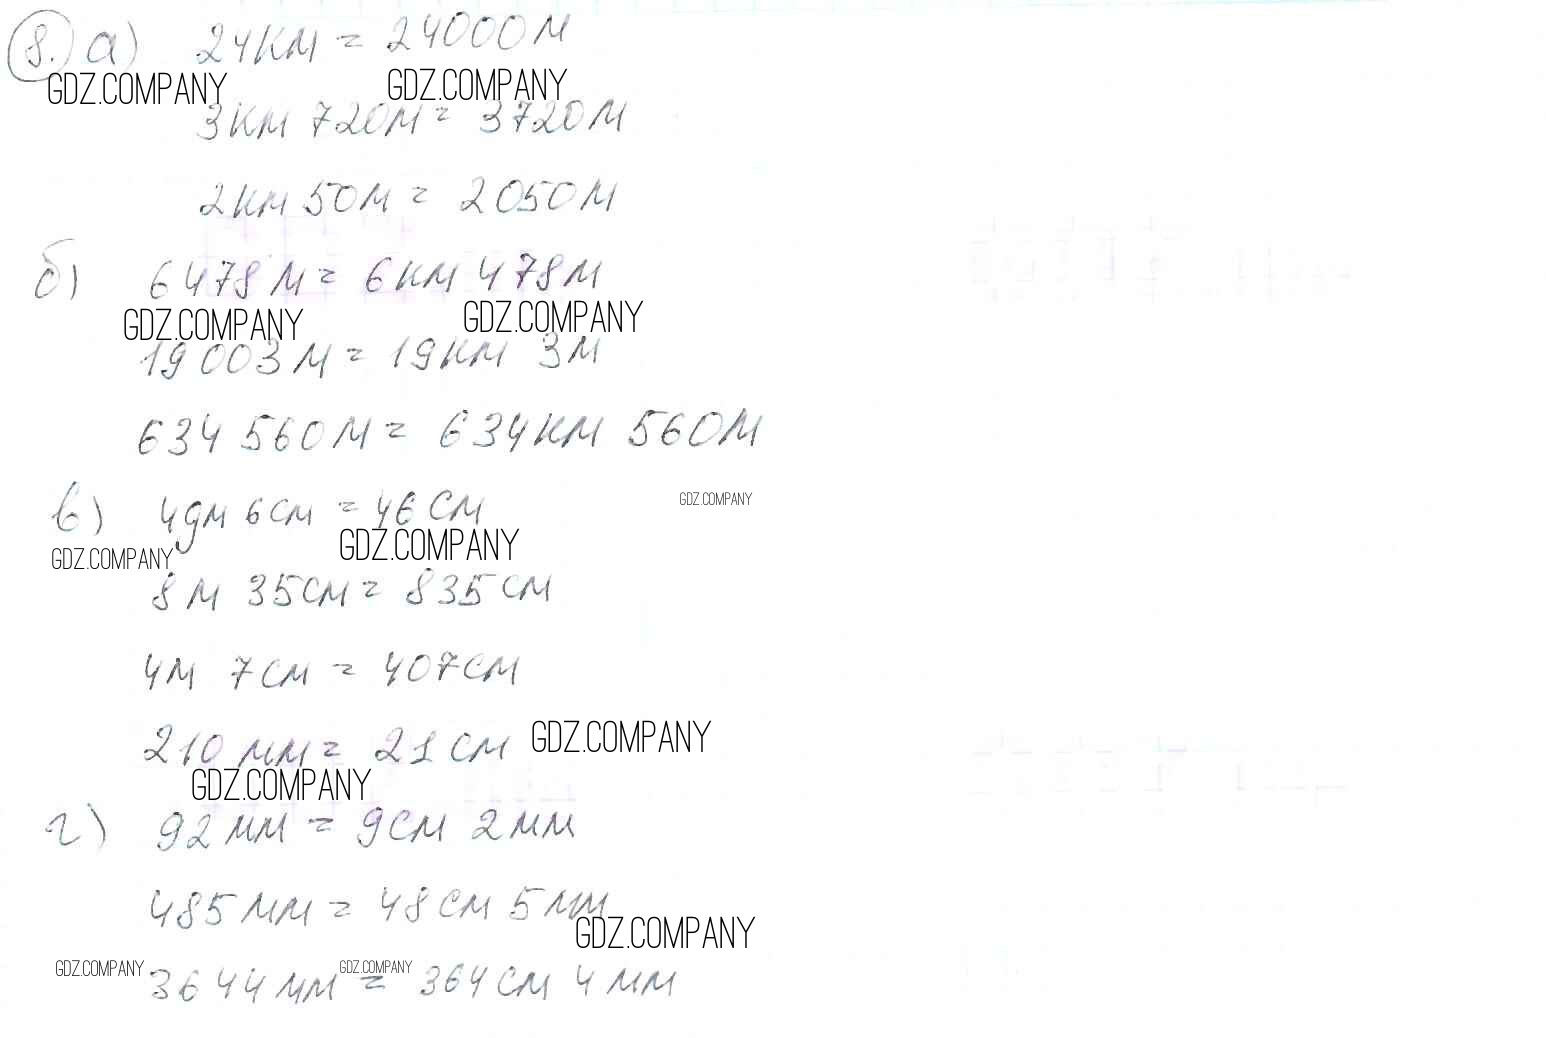 8. а) 24км = 24000м
GDZ.COMPANY GDZ.COMPANY
3км 720м = 3720м
2км 50м = 2050м
б) 6478м = 6км 478м
GDZ.COMPANY GDZ.COMPANY
19 003м = 19км 3м
634 560м = 634км 560м
в) 4дм 6см = 46см
GDZ.COMPANY
GDZ.COMPANY GDZ.COMPANY
8м 35см = 835см
4м 7см = 407см
210 мм = 21 см GDZ.COMPANY
GDZ.COMPANY
г) 92мм = 9см 2мм
485мм = 48см 5мм
GDZ.COMPANY
GDZ.COMPANY GDZ.COMPANY
3644мм = 364см 4мм